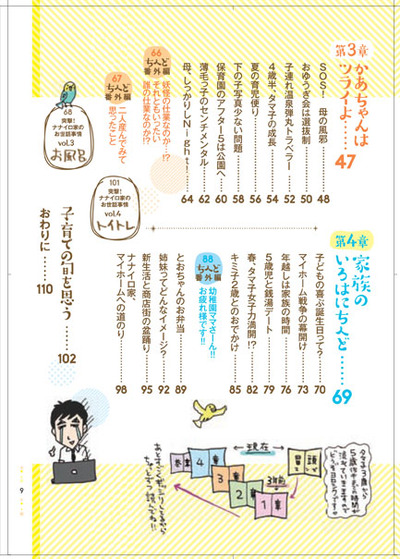 第3章
かあちゃんは
ツライよ……47
SOS! 母の風邪 48
おゆうぎ会は選抜制 50
子連れ温泉弾丸トラベラー 52
4歳半、タマ子の成長 54
夏の育児便り 56
下の子写真少ない問題 58
保育園のアフター5は公園へ 60
薄毛っ子のセンチメンタル 62
母、しっかりしNight! 64
66
ちんど
番外編
妖怪の仕業なのか…!?
それともいったい
誰の仕業なのか!?
67
ちんど
番外編
二人産んでみて
思ったこと
68
突撃!
ナナイロ家の
お世話事情
vol.3
お風呂
101
突撃!
ナナイロ家の
お世話事情
vol.4
トイトレ
第4章
家族の
いろはにちんど……69
子どもの喜ぶ誕生日って? 70
マイホーム戦争の幕開け 73
年越しは家族の時間 76
5歳児と銭湯デート 79
春、タマ子女子力満開!? 82
キミ子2歳とのおでかけ 85
88
ちんど
番外編
幼稚園ママさーん!!
お疲れ様です!!
とおちゃんのお弁当 89
姉妹ってどんなイメージ? 92
新生活と商店街の盆踊り 95
ナナイロ家、
マイホームへの道のり 98
子育ての旬を思う……102
おわりに……110
現在
3年前
冒頭
1章
2章
3章
4章
巻末
9